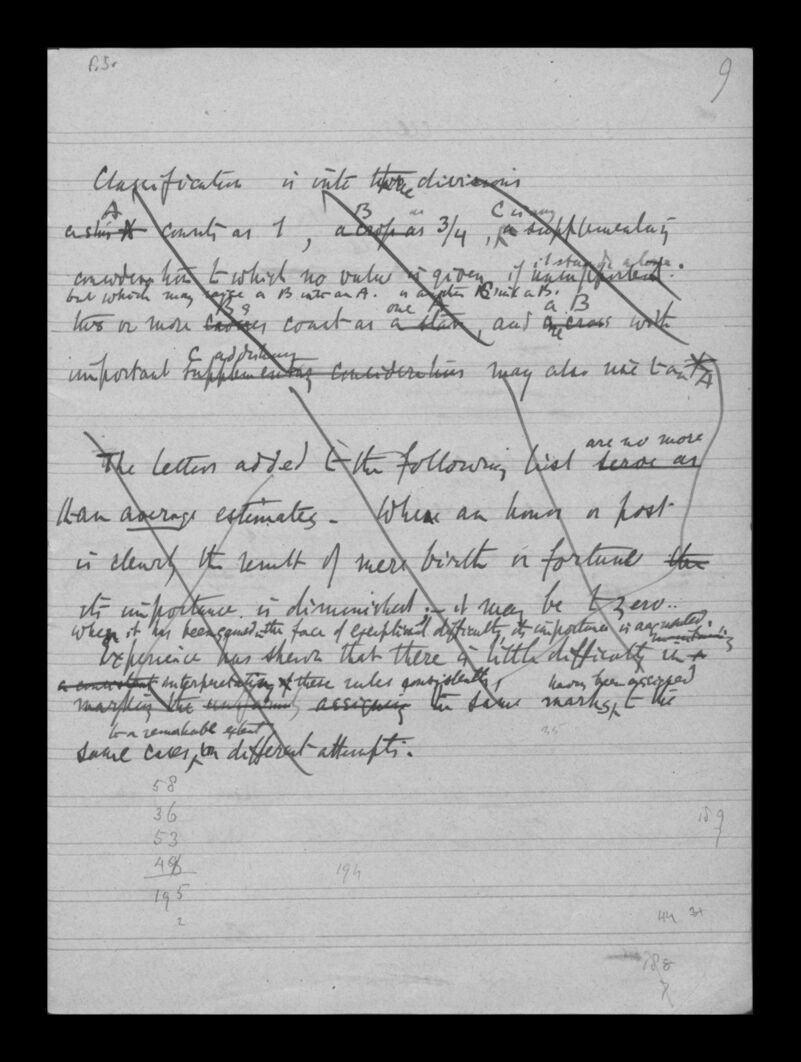 P.S.
9
Classification is into three divisions
A B C
a star * counts as 1, a cross as 3/4, a supplementary
it stands alone
consideration to which no value is given if unimportant.
but which may raise a B into an A. B into a B.
two or more crosses count as one a star, and a B a cross with
C
important supplementary considerations may also rise to an * A
are no more
The letters added to the following list serve as
than average estimates. Where an honor or post
is clearly the result of mere birth or fortune the
its importance is diminished ; it may be to zero..
when it has been gained in the face of exceptional difficulty, its importance is augmented.
Experience has shewn that there is little difficulty in
a consistent interpretation of these rules consistently, having been assigned
marking the uniformly assigning the same marks, to the
to a remarkable extent
same cases, in different attempts.
58
36
53
48
195
2
194
189
7
44 31
188
7